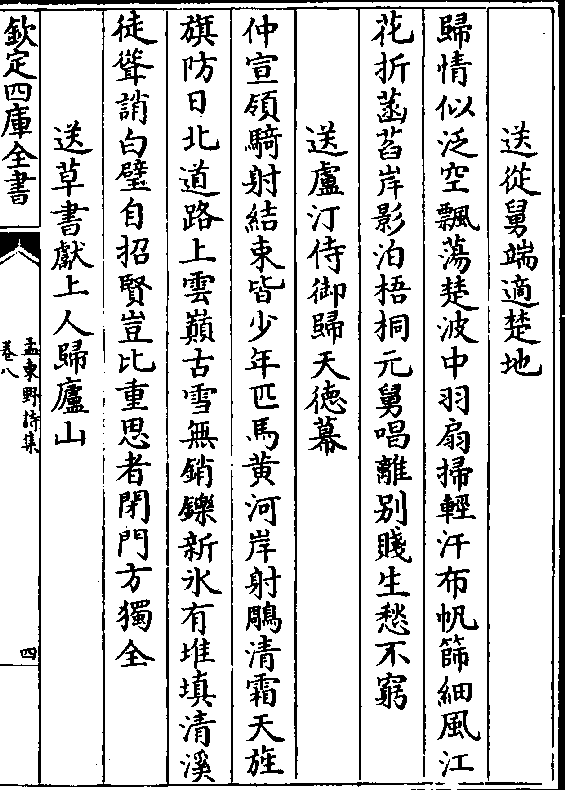 送從舅端適楚地
歸情似泛空飄蕩楚波中羽扇掃輕汗布帆篩細風江
花折菡萏岸影泊梧桐元舅唱離别賤生愁不窮
送盧汀侍御歸天徳幕
仲宣領騎射結束皆少年匹馬黄河岸射鵰清霜天旌
旗防日北道路上雲巔古雪無銷鑠新氷有堆填清溪
徒聳誚白璧自招賢豈比重恩者閉門方獨全
送草書獻上人歸廬山
欽定四庫全書
孟東野詩集
卷八
四